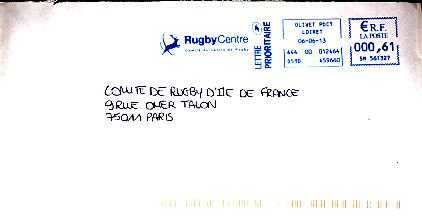 RugbyCentre
Comité du Centre de Rugby
LETTRE
PRIORITAIRE
OLIVET PDC1
LOIRET
06-06-13
444 00 012464
0130 459660
€R.F.
LA POSTE
000,61
SN 561327
COMITE DE RUGBY D'ILE DE FRANCE
9 RUE OMER TALON
75011 PARIS